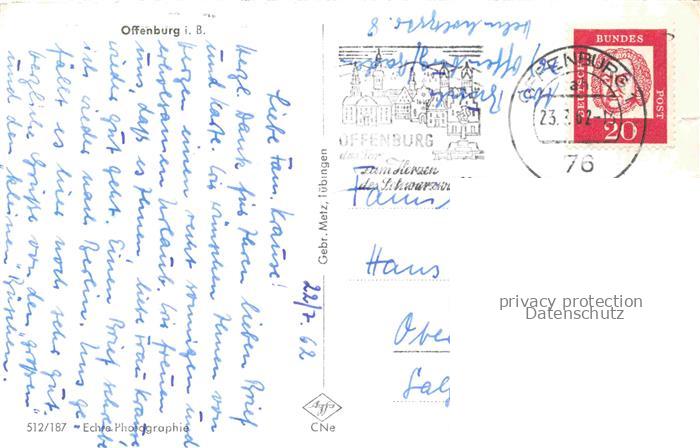 Offenburg i. B.
Liebe Fam. Krause!
Herzl. Dank für Ihren lieben Brief
und Karte. Wir wünschen Ihnen von
Herzen einen recht sonnigen und
erholsamen Urlaub. Wir freuen
uns, daß es Ihnen, liebe Frau Krause
wieder gut geht. Einen Brief schreibe
ich wieder nach Berlin. Uns ge-
fällt es hier noch sehr gut.
herzliche Grüße von den "großen"
und den kleinen
22/7. 62
512/187 Echte Photographie
Gebr. Metz, Tübingen
Agfa
CNe
Offenburg
OFFENBURG
das Tor
zum Herzen
des Schwarzw
OFFENBURG
23. 62-1
76
DEUTSCHE
BUNDES
POST
20
Hans
Ober
privacy protection
Datenschutz